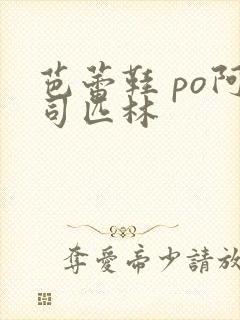 芭蕾鞋 po阿
司匹林
奪愛帝少請放